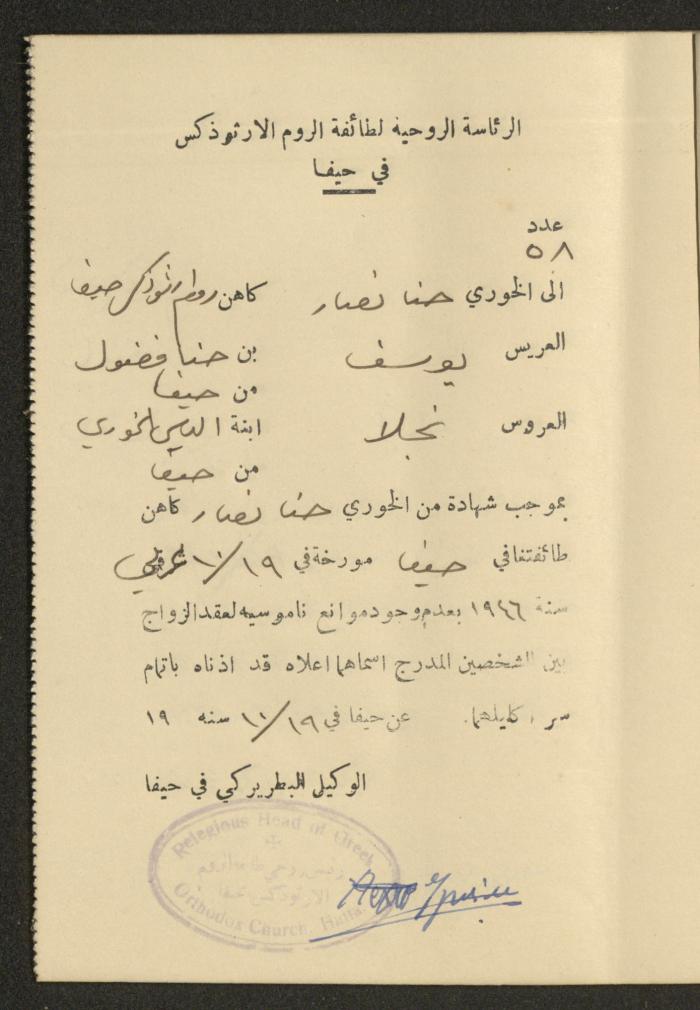 الرئاسة الروحية لطائفة الروم الارثوذكس
في حيفا
عدد
٥٨
الى الخوري حنا نصار كاهن روم ارثوذكس حيفا
العريس يوسف بن حنا فضول
من حيفا
العروس نجلا ابنة الياس الخوري
من حيفا
بموجب شهادة من الخوري حنا نصار كاهن
طائفتنا في حيفا مورخة في ١٠/١٩
سنة ١٩٤٦ بعدم وجود موانع ناموسيه لعقد الزواج
بين الشخصين المدرج اسماهما اعلاه قد اذناه باتمام
سر اكليلهما. عن حيفا في ١٩/١١ سنه ١٩
الوكيل البطريركي في حيفا
Relegious Head of Greek
رئيس روحي طائفة الروم
الارثوذكس بحيفا
Orthodox Church, Haifa